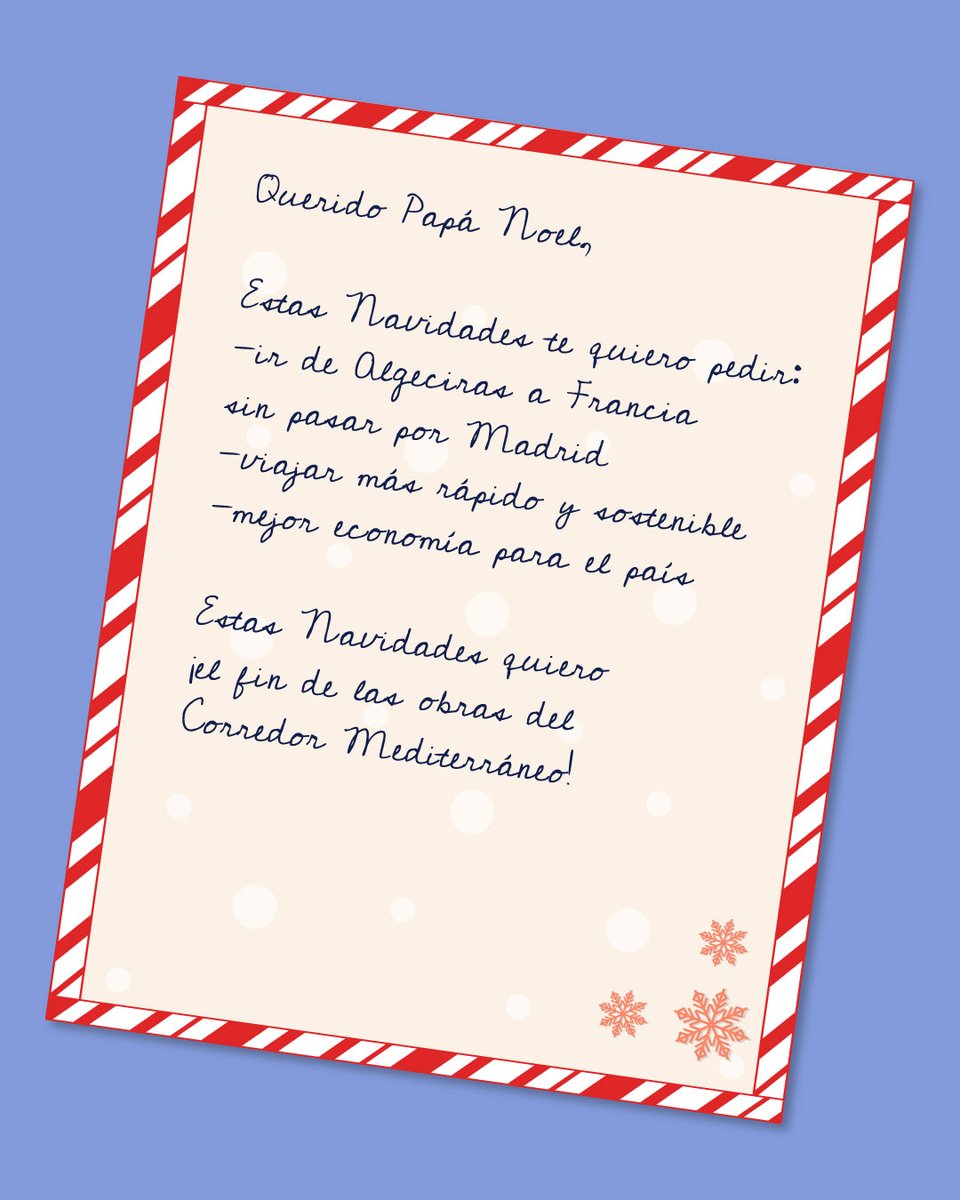 Querido Papá Noel,
Estas Navidades te quiero pedir:
-ir de Algeciras a Francia
sin pasar por Madrid
-viajar más rápido y sostenible
-mejor economía para el país
Estas Navidades quiero
¡el fin de las obras del
Corredor Mediterráneo!